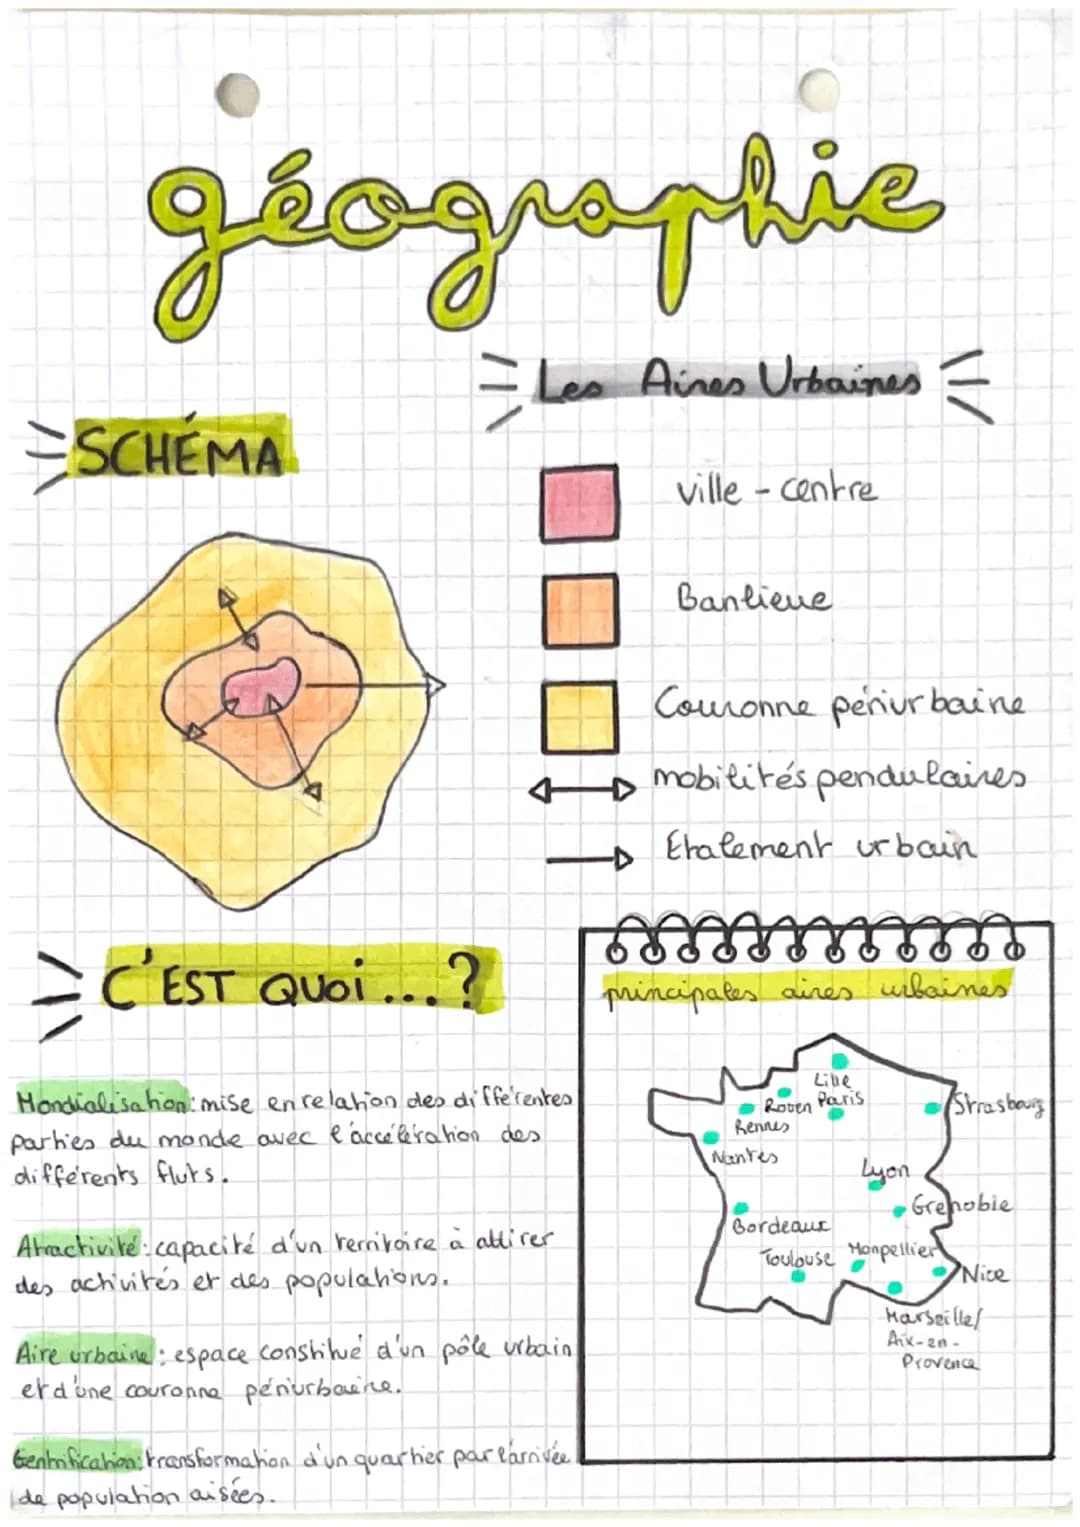 géographie
Les Aires Urbaines
SCHÉMA
ville - centre
Banlieue
Couronne périurbaine
mobilités pendulaires
Etalement urbain
C'EST QUOI...?
Mondialisation: mise en relation des différentes
parties du monde avec l'accélération des
différents fluts.
Atractivité: capacité d'un territoire à attirer
des activités et des populations.
Aire urbaine: espace constitué d'un pôle urbain
et d'une couronne périurbaine.
Gentrification: transformation d'un quartier par l'arrivée
de population aisées.
principales aires urbaines
Lille
Rouen Paris
Rennes
Strasbourg
Nantes
Lyon
Grenoble
Bordeaux
Toulouse Monpellier
Nice
Marseille/
Aix-en-
Provence